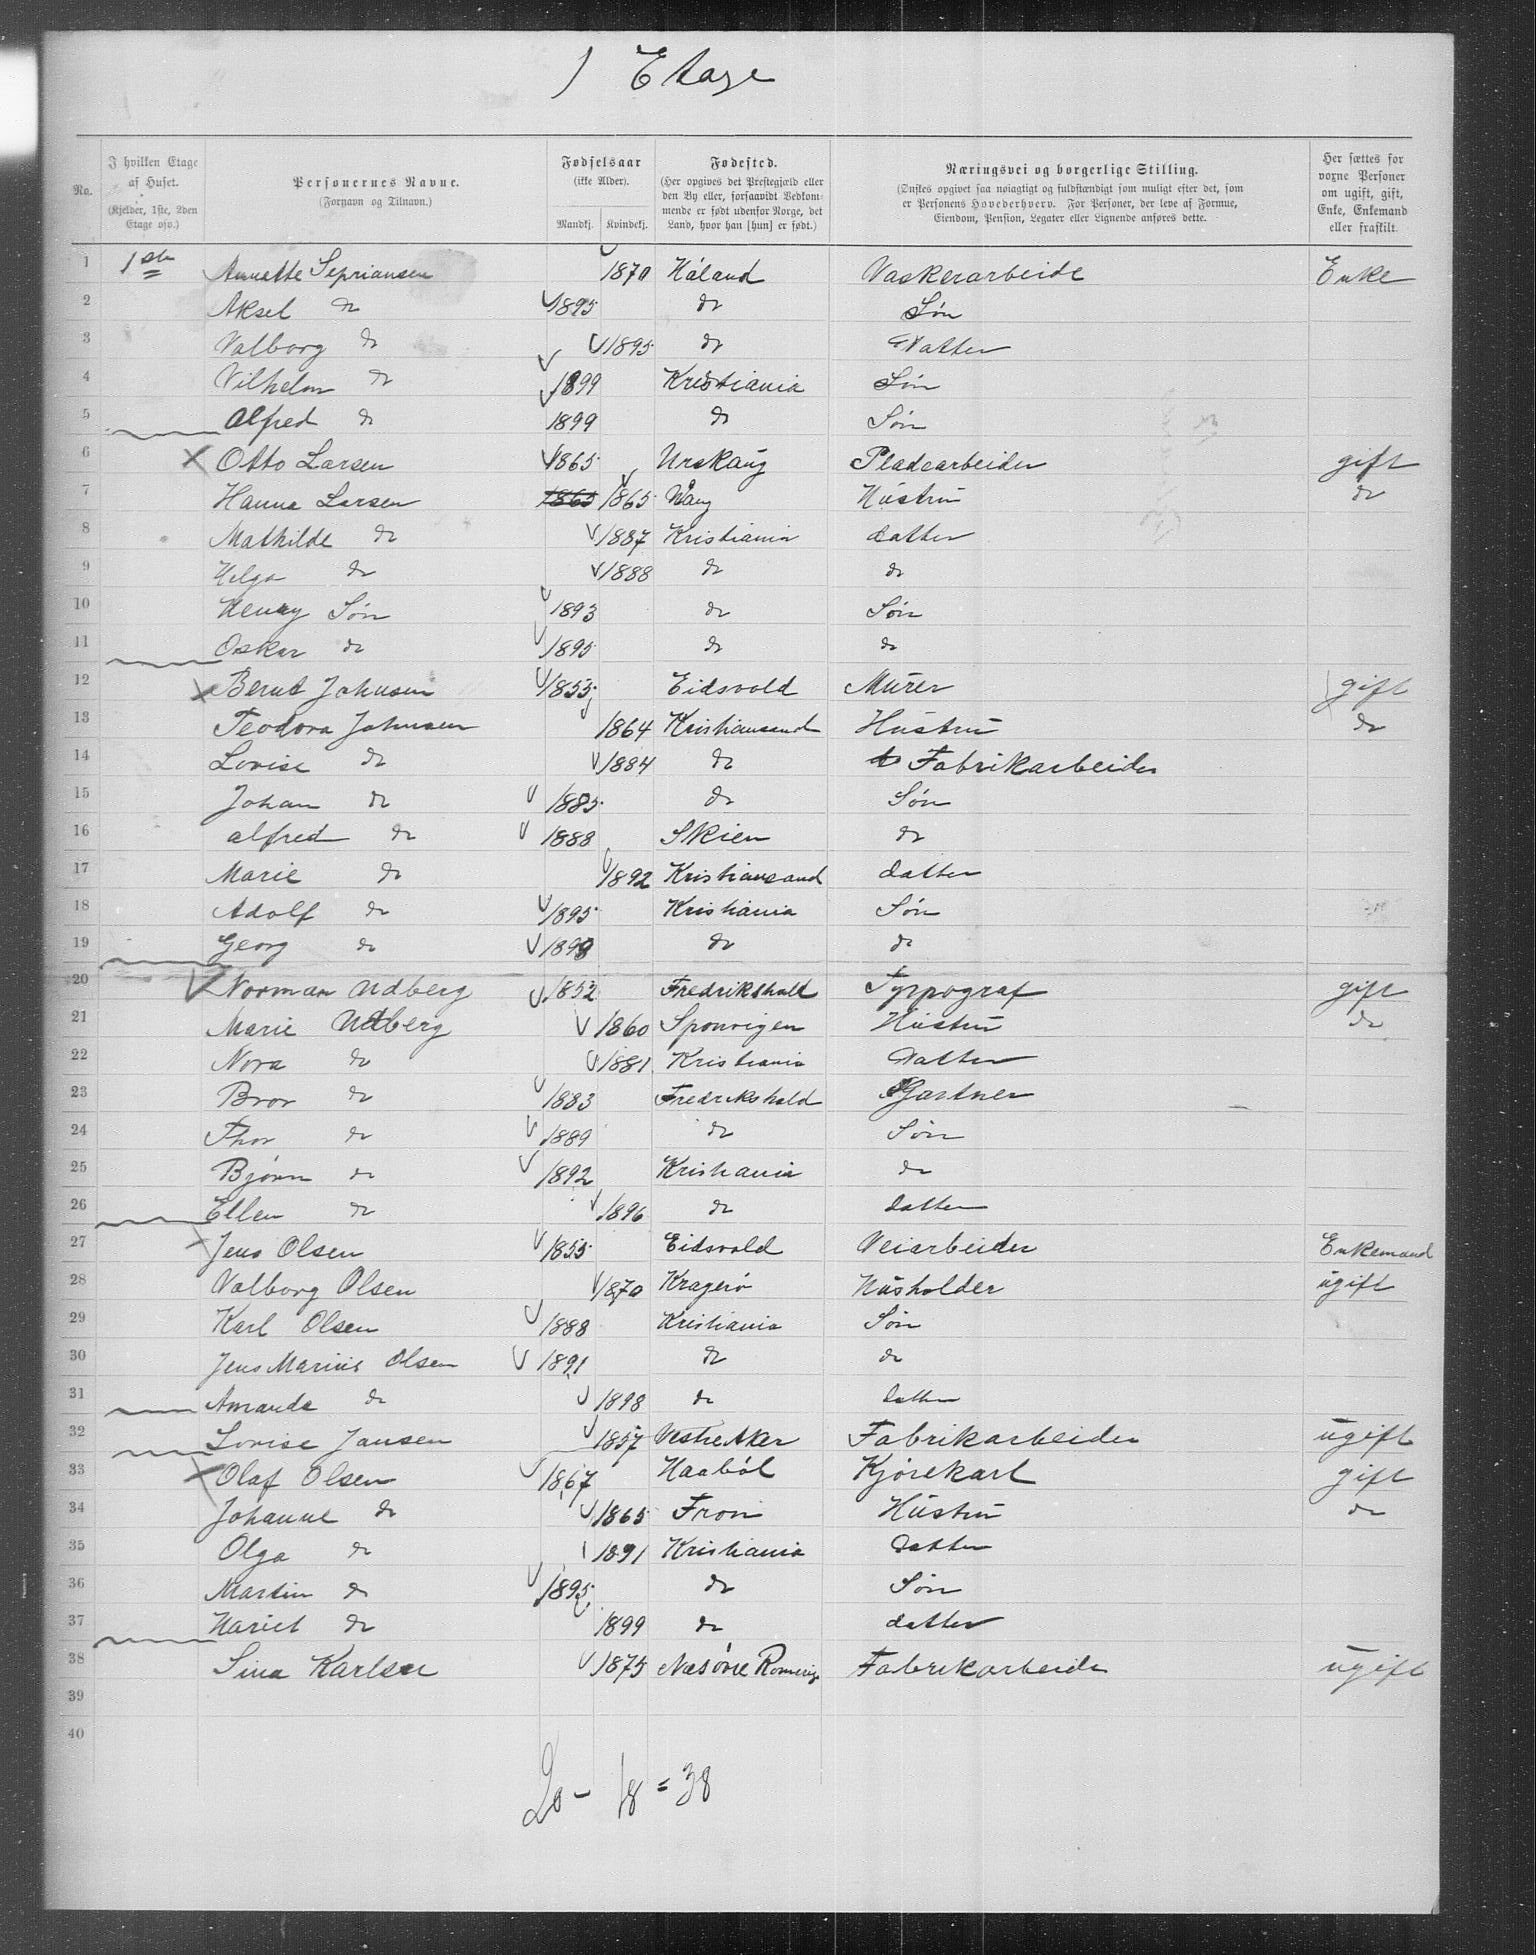 1 Etage
No. | I hvilken Etage af Huset. (Kjelder, 1ste, 2den Etage osv.) | Personernes Navne. (Fornavn og Tilnavn.) | Fødselsaar (ikke Alder). Mandkj. Kvindekj. | Fødested. (Her opgives det Prestegjæld eller den By eller, forsaavidt Vedkommende er født udenfor Norge, det Land, hvor han [hun] er født.) | Næringsvei og borgerlige Stilling. (Ønskes opgivet saa nøiagtigt og fuldstændigt som muligt efter det, som er Personens Hovederhverv. For Personer, der leve af Formue, Eiendom, Pension, Legater eller Lignende anføres dette. | Her sættes for voxne Personer om ugift, gift, Enke, Enkemand eller fraskilt.
1 1ste Annette Sepriansen 1870 Háland Vaskerarbeide Enke
2 Aksel do 1895 do Søn
3 Valborg do 1895 do Datter
4 Vilhelm do 1899 Kristiania Søn
5 Alfred do 1899 do Søn
6 Otto Larsen 1865 Urskaug Pladearbeider gift
7 Hanna Larsen 1865 1865 Vang Hústrú do
8 Mathilde do 1887 Kristiania datter
9 Helga do 1888 do do
10 Henry Søn 1893 do Søn
11 Oskar do 1895 do do
12 Bernt Johnsen 1855 Eidsvold Múrer gift
13 Teodora Johnsen 1864 Kristiansand Hústrú do
14 Lovise do 1884 do Fabrikarbeider
15 Johan do 1885 do Søn
16 alfred do 1888 Skien do
17 Marie do 1892 Kristiansand datter
18 Adolf do 1895 Kristiania Søn
19 Georg do 1899 do do
20 Norman Udberg 1852 Fredrikshald Typpograf gift
21 Marie Udberg 1860 Sponvigen Hústrú do
22 Nora do 1881 Kristiania Datter
23 Bror do 1883 Fredrikshald Gartner
24 Thor do 1889 do Søn
25 Bjørn do 1892 Kristiania do
26 Ellen do 1896 do datter
27 Jens Olsen 1855 Eidsvold Veiarbeider Enkemand
28 Valborg Olsen 1870 Kragerø Húsholder úgift
29 Karl Olsen 1888 Kristiania Søn
30 Jens Mariús Olsen 1891 do do
31 Amanda do 1898 do datter
32 Lovise Jansen 1857 Vestre Aker Fabrikarbeider úgift
33 Olaf Olsen 1867 Haabøl Kjørekarl gift
34 Johanne do 1865 Fron Hústrú do
35 Olga do 1891 Kristiania datter
36 Martin do 1895 do Søn
37 Hariet do 1899 do datter
38 Sina Karlsen 1875 Nes øvre Romerige Fabrikarbeide úgift
39
40
20 - 18 = 38